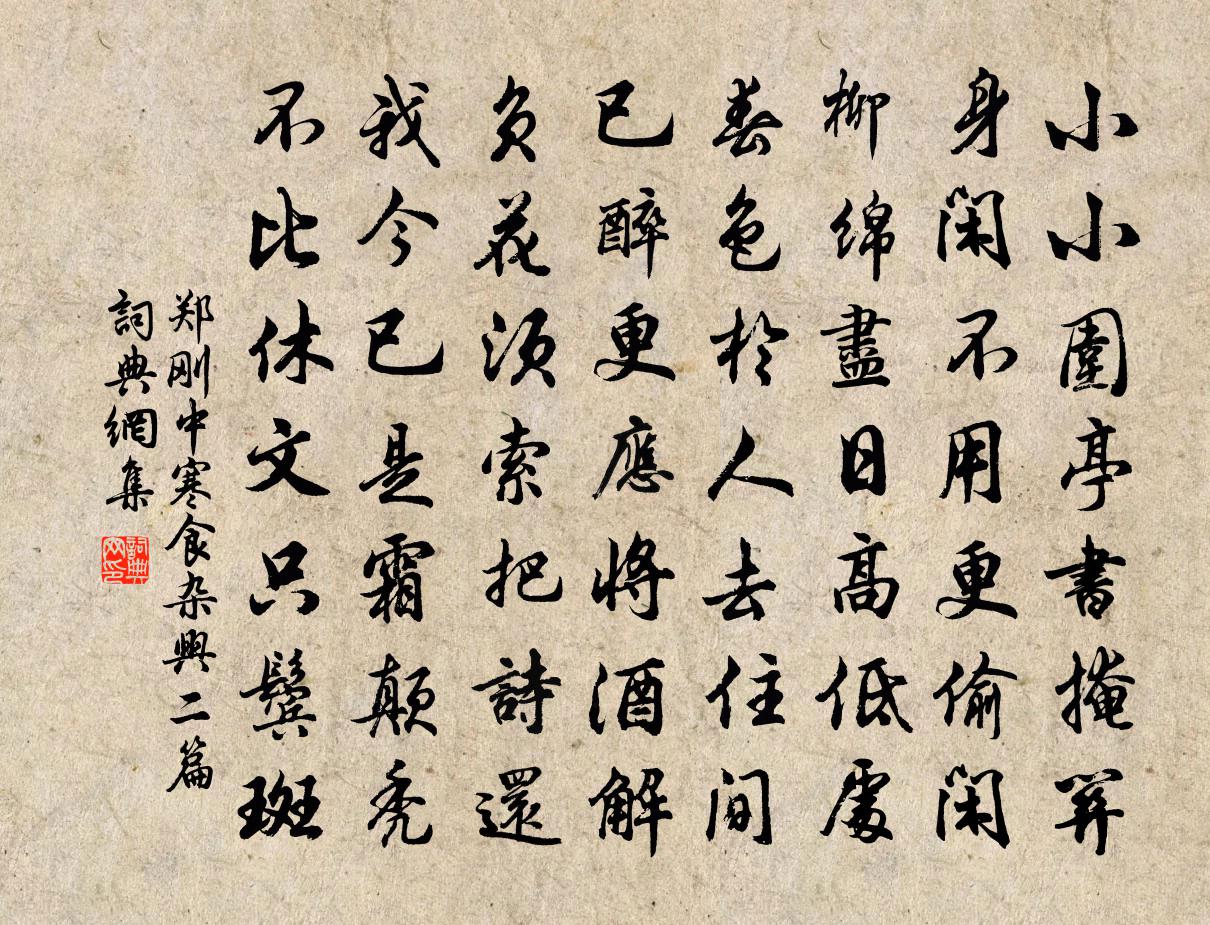 小小園亭書掩关
身閑不用更偷閑
柳綿盡日高低處
春色於人去住間
已醉更應將酒解
負花須索把詩還
我今已是霜顛禿
不比休文只鬢斑
郑刚中寒食杂興二篇
詞典網集
詞典网印